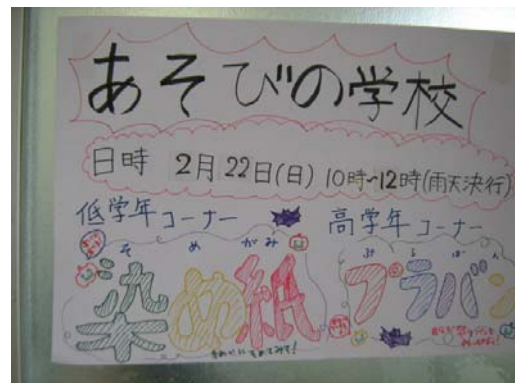 あそびの学校
日時 2月22日(日) 10時~12時(雨天決行)
低学年コーナー
高学年コーナー
そ め がみ
染め紙
プラバン